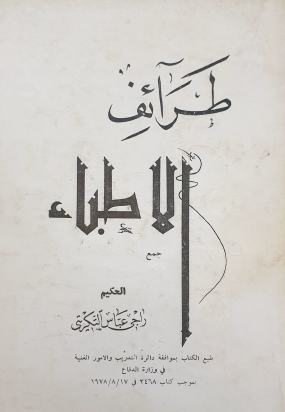 طَرَآئِف
الاطباء
جمع
الحكيم
راجي عباس التكريتي
طبع الكتاب بموافقة دائرة التدريب والامور الفنية
في وزارة الدفاع
بموجب كتاب ٢٤٦٨ في ١٩٧٨/٨/١٧